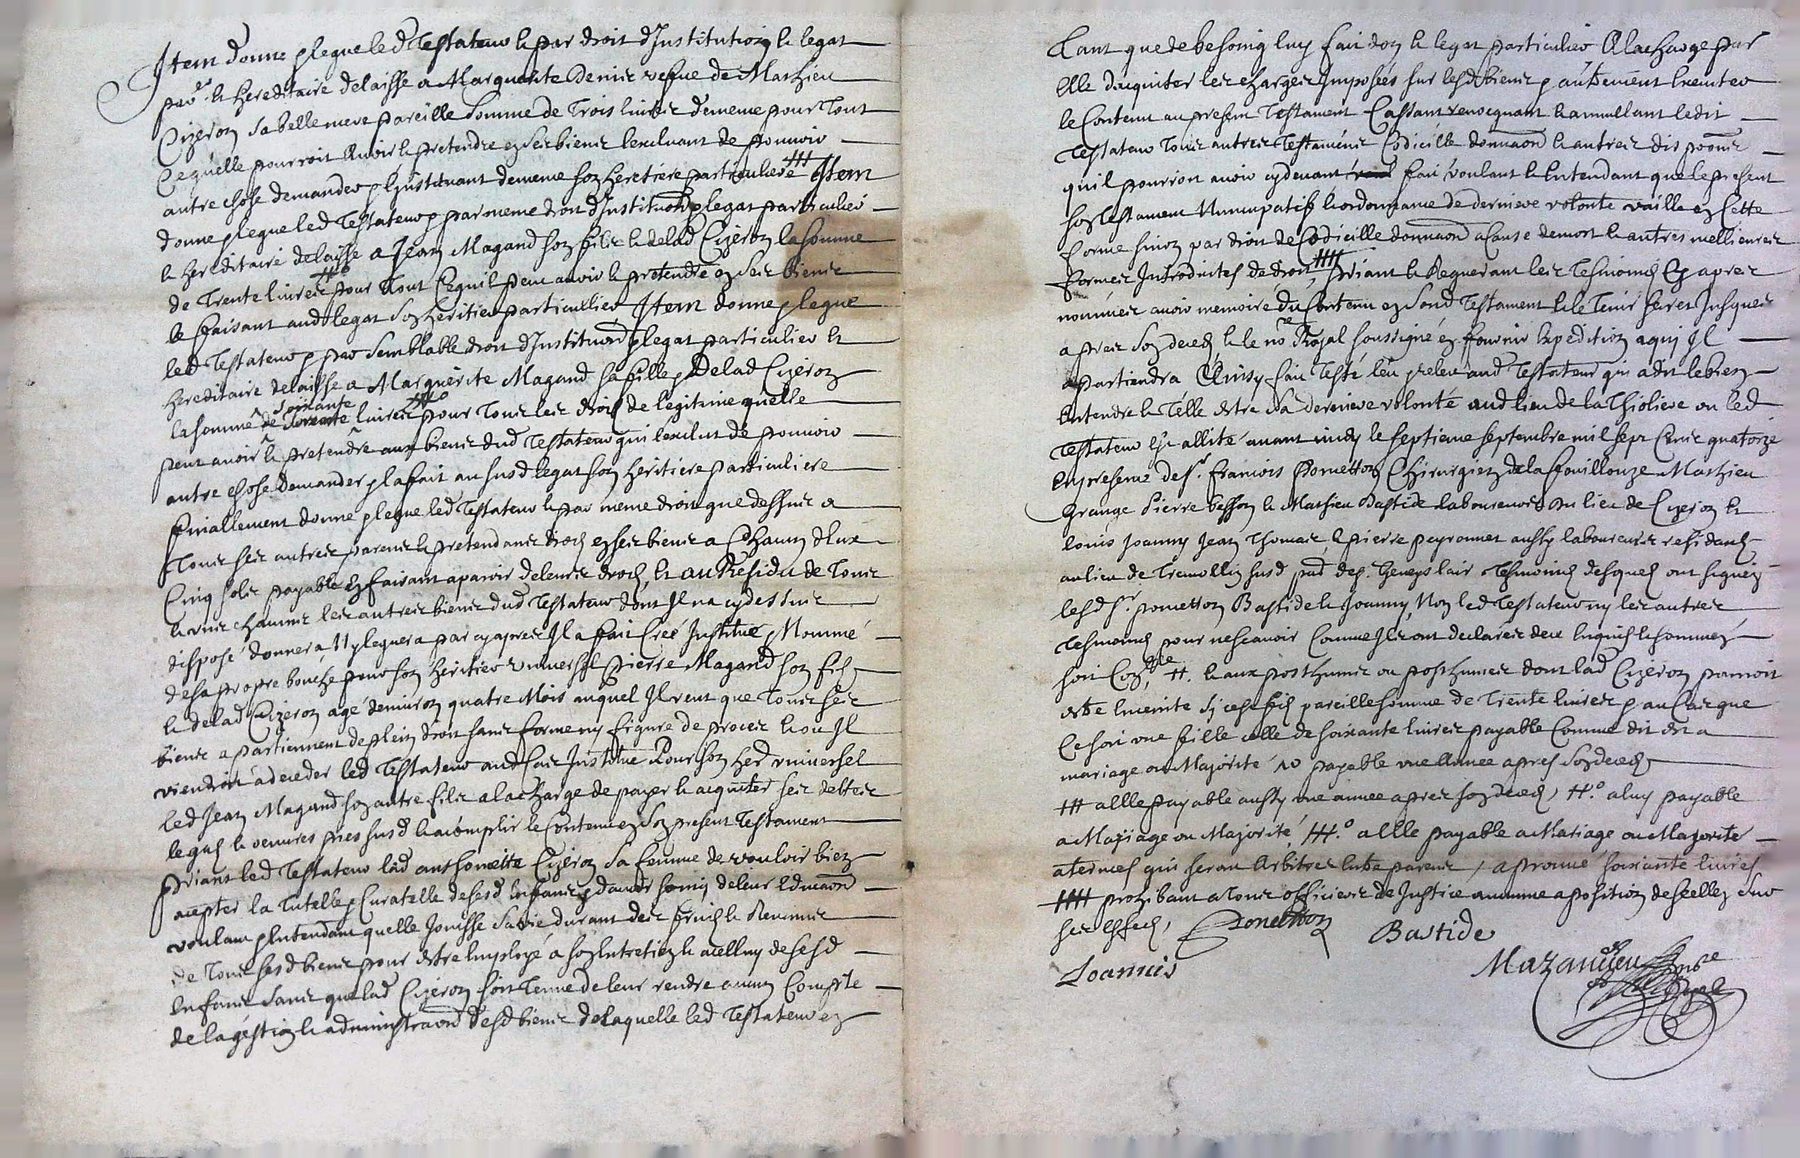 Item donne & legue led Testateur & par droit d'Institution & legat
par.r & hereditaire delaisse a Marguerite Denis vefue de Mathieu
Cizeron sa belle mere pareille somme de Trois livres demême pour Tout
Ce quelle pourroit Avoir & pretendre en ses biens lexcluant de pouvoir
autre chose demander & l'Instituant demême son heretiere particuliere ╫ Item
donne & legue led Testateur & par meme droit d'Institu(on) & legat particulier
& hereditaire delaisse a Jean Magand son fils & delad Cizeron la somme
de Trente livres ╫o pour Tout Cequil peut avoir & pretendre en ses biens
le faisant aud legat son heritier particullier Item donne & legue
led Testateur & par semblable droit d'Institu(on) & legat particulier et
hereditaire delaisse a Marguerite Magand sa fille & Delad Cizeron
la somme de soixante livres ╫o pour Tous les droits de legitime quelle
peut avoir & pretendre aux biens dud Testateur qui l'exclut de pouvoir
autre chose demander & la fait au susd legat son heritiere particuliere
finallement donne & legue led Testateur & par même droit que dessus a
Tous ses autres parents & pretendants droits en ses biens a Chacun d'Eux
Cinq sols payable En faisant aparoir de leurs droits Et au Residu de Tous
& uns chacuns les autres biens dud Testateur dont Il na cydessus
disposé donnera Ny leguera par cyapres Il a fait créé Institué & Nommé
de sa propre bouche pour son heritier universel Pierre Magand son fils
& delad Cizeron agé denviron quatre Mois auquel Il veut que Tous ses
biens apartiennent de plein droit sans forme ny figure de proces & ou Il
viendroit a deceder led Testateur aud Cas Institue Pour son her universel
led Jean Magand son autre fils a la charge de payer & acquiter ses debtes
legats & œuvres pies susd & acomplir le Contenu en son present Testament
Priant led Testateur lad anthoinette Cizeron sa femme de vouloir bien
accepter la Tutelle & Curatelle desesd Enfants & davoir soing de leur Educaon
voulant & Entendant quelle Jouisse sa vie durant des fruits & Revenus
de Tous sesd biens pour Estre Employé a son Entretien & a celluy de sesd
Enfants sans que lad Cizeron soit Tenue de leur rendre aucun Compte
de la gestion & administraon desd biens de laquelle led Testateur En
Tant que de besoing luy fait don & legat particulier A la charge par
Elle dacquiter les charges Imposées sur lesd biens & autrement Executer
le Contenu au present Testament Cassant revocquant & annullant ledit
Testateur Tous autres Testaments Codicille donnaon & autres disp(ons)
quil pourroit avoir cydevant fait voulant & Entendant que le present
son Testament Nuncupatif & ordonnance de derniere volonté vaille en Cette
forme sinon par droit de Codicille donnaon a Cause de mort & autres meillieures
formes Introduites de droit ╫╫ Priant & Requerant les Tesmoings Cy apres
nommés avoir memoire du Contenu en Sond Testament & le Tenir secret Jusques
apres son deceds & le no.re Royal soussigne en fournir Expedition a qui Il
apartiendra Ainsy fait Testé leu & releu aud Testateur qui a dit le bien
Entendre & Telle Estre sa derniere volonté aud lieu de la Thioliere ou led
Testateur Est allité avant midy le septieme septembre mil sept Cents quatorze
En presence de s.r francois Ponetton Chirurgien de la fouillouze Mathieu
Grange Pierre besson & Mathieu Bastide Laboureurs du lieu de Cizeron &
louis Joanny Jean Thomas & pierre peyronnet aussy laboureurs residants
au lieu de Tremollin susd par de S. Geneys lair Tesmoings desquels ont signé
lesd s.r ponetton Bastide & Joanny Non led Testateur ny les autres
Tesmoings pour ne scavoir Comme Ils ont declarés deux Enquis & sommez
soit Con.le ╫. & aux posthumes ou posthumes dont lad Cizeron pourroit
estre Enceinte Si cest fils pareille somme de Trente livres & au Cas que
Ce soit une fille celle de soixante livres payable Comme dit Est a
mariage ou Majorité payable une Annee apres son deceds
╫ a Elle payable aussy une annee apres son deceds, ╫.o a luy payable
a Mariage ou Majorité, ╫.o a Elle payable a Mariage ou Majorité
a termes qui seront Arbitrez Entre parents, aprouve soixante livres
╫╫ prohibant a Tous officiers de Justice aucunne aposition de scellez Sur
ses Effects, Ponetton
Bastide
Joannis
Mazandieu